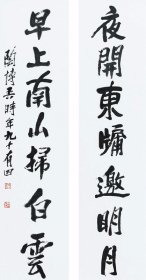 夜開東牖邀明月
早上南山掃白雲
陶博吾時年九十有四